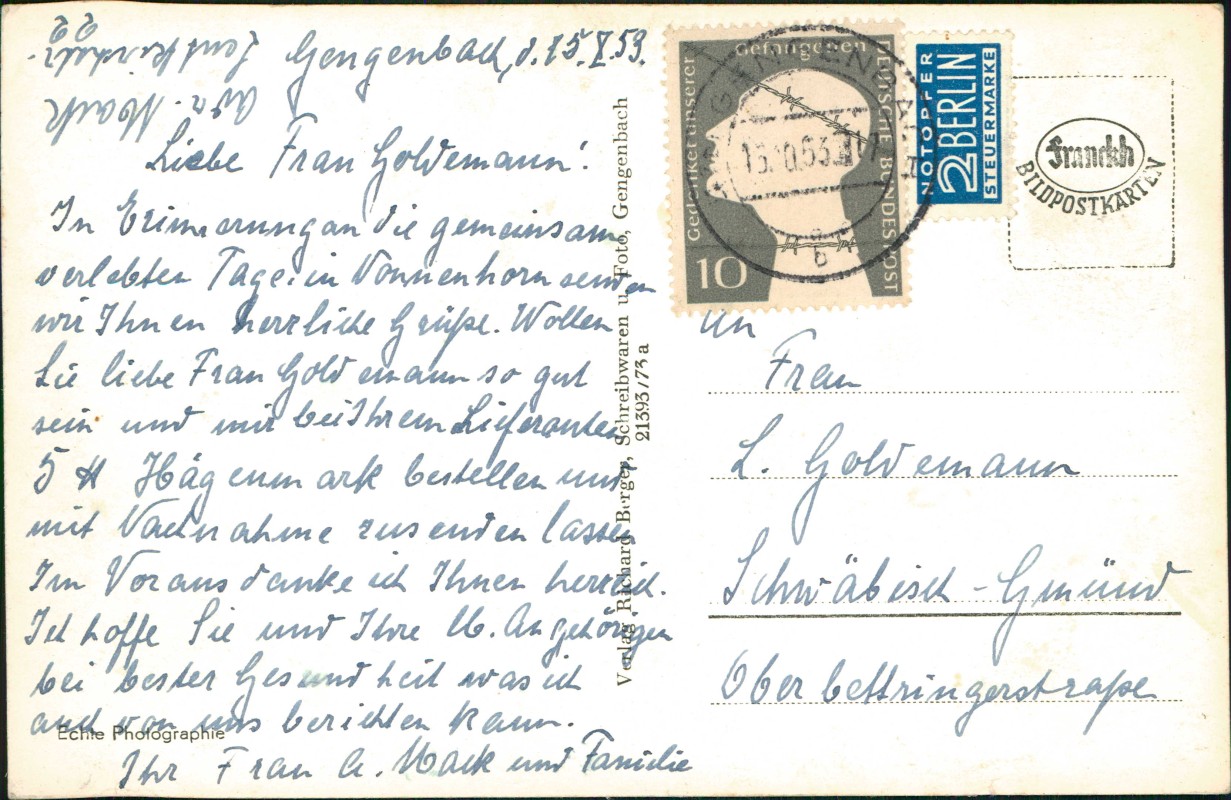 Gengenbach, d. 15.X.53.
Liebe Frau Goldemann!
In Erinnerung an die gemeinsam
verlebten Tage in Nonnenhorn senden
wir Ihnen herzliche Grüße. Wollen
Sie liebe Frau Goldemann so gut
sein und mir bei Ihrem Lieferanten
5 Hägenmark bestellen und
mit Nachnahme zusenden lassen
Im Voraus danke ich Ihnen herzlich.
Ich hoffe Sie und Ihre lb. Angehörigen
bei bester Gesundheit was ich
auch von uns berichten kann.
Ihr Frau A. Mack und Familie
Echte Photographie
Verlag Richard Berger, Schreibwaren u. Foto, Gengenbach
21393/73 a
Gedenket unserer
Gefangenen
DEUTSCHE BUNDESPOST
10
GENGENBACH
NOTOPFER
2 BERLIN
STEUERMARKE
Franckh
BILDPOSTKARTEN
An
Frau
L. Goldemann
Schwäbisch-Gmünd
Oberbettringerstraße